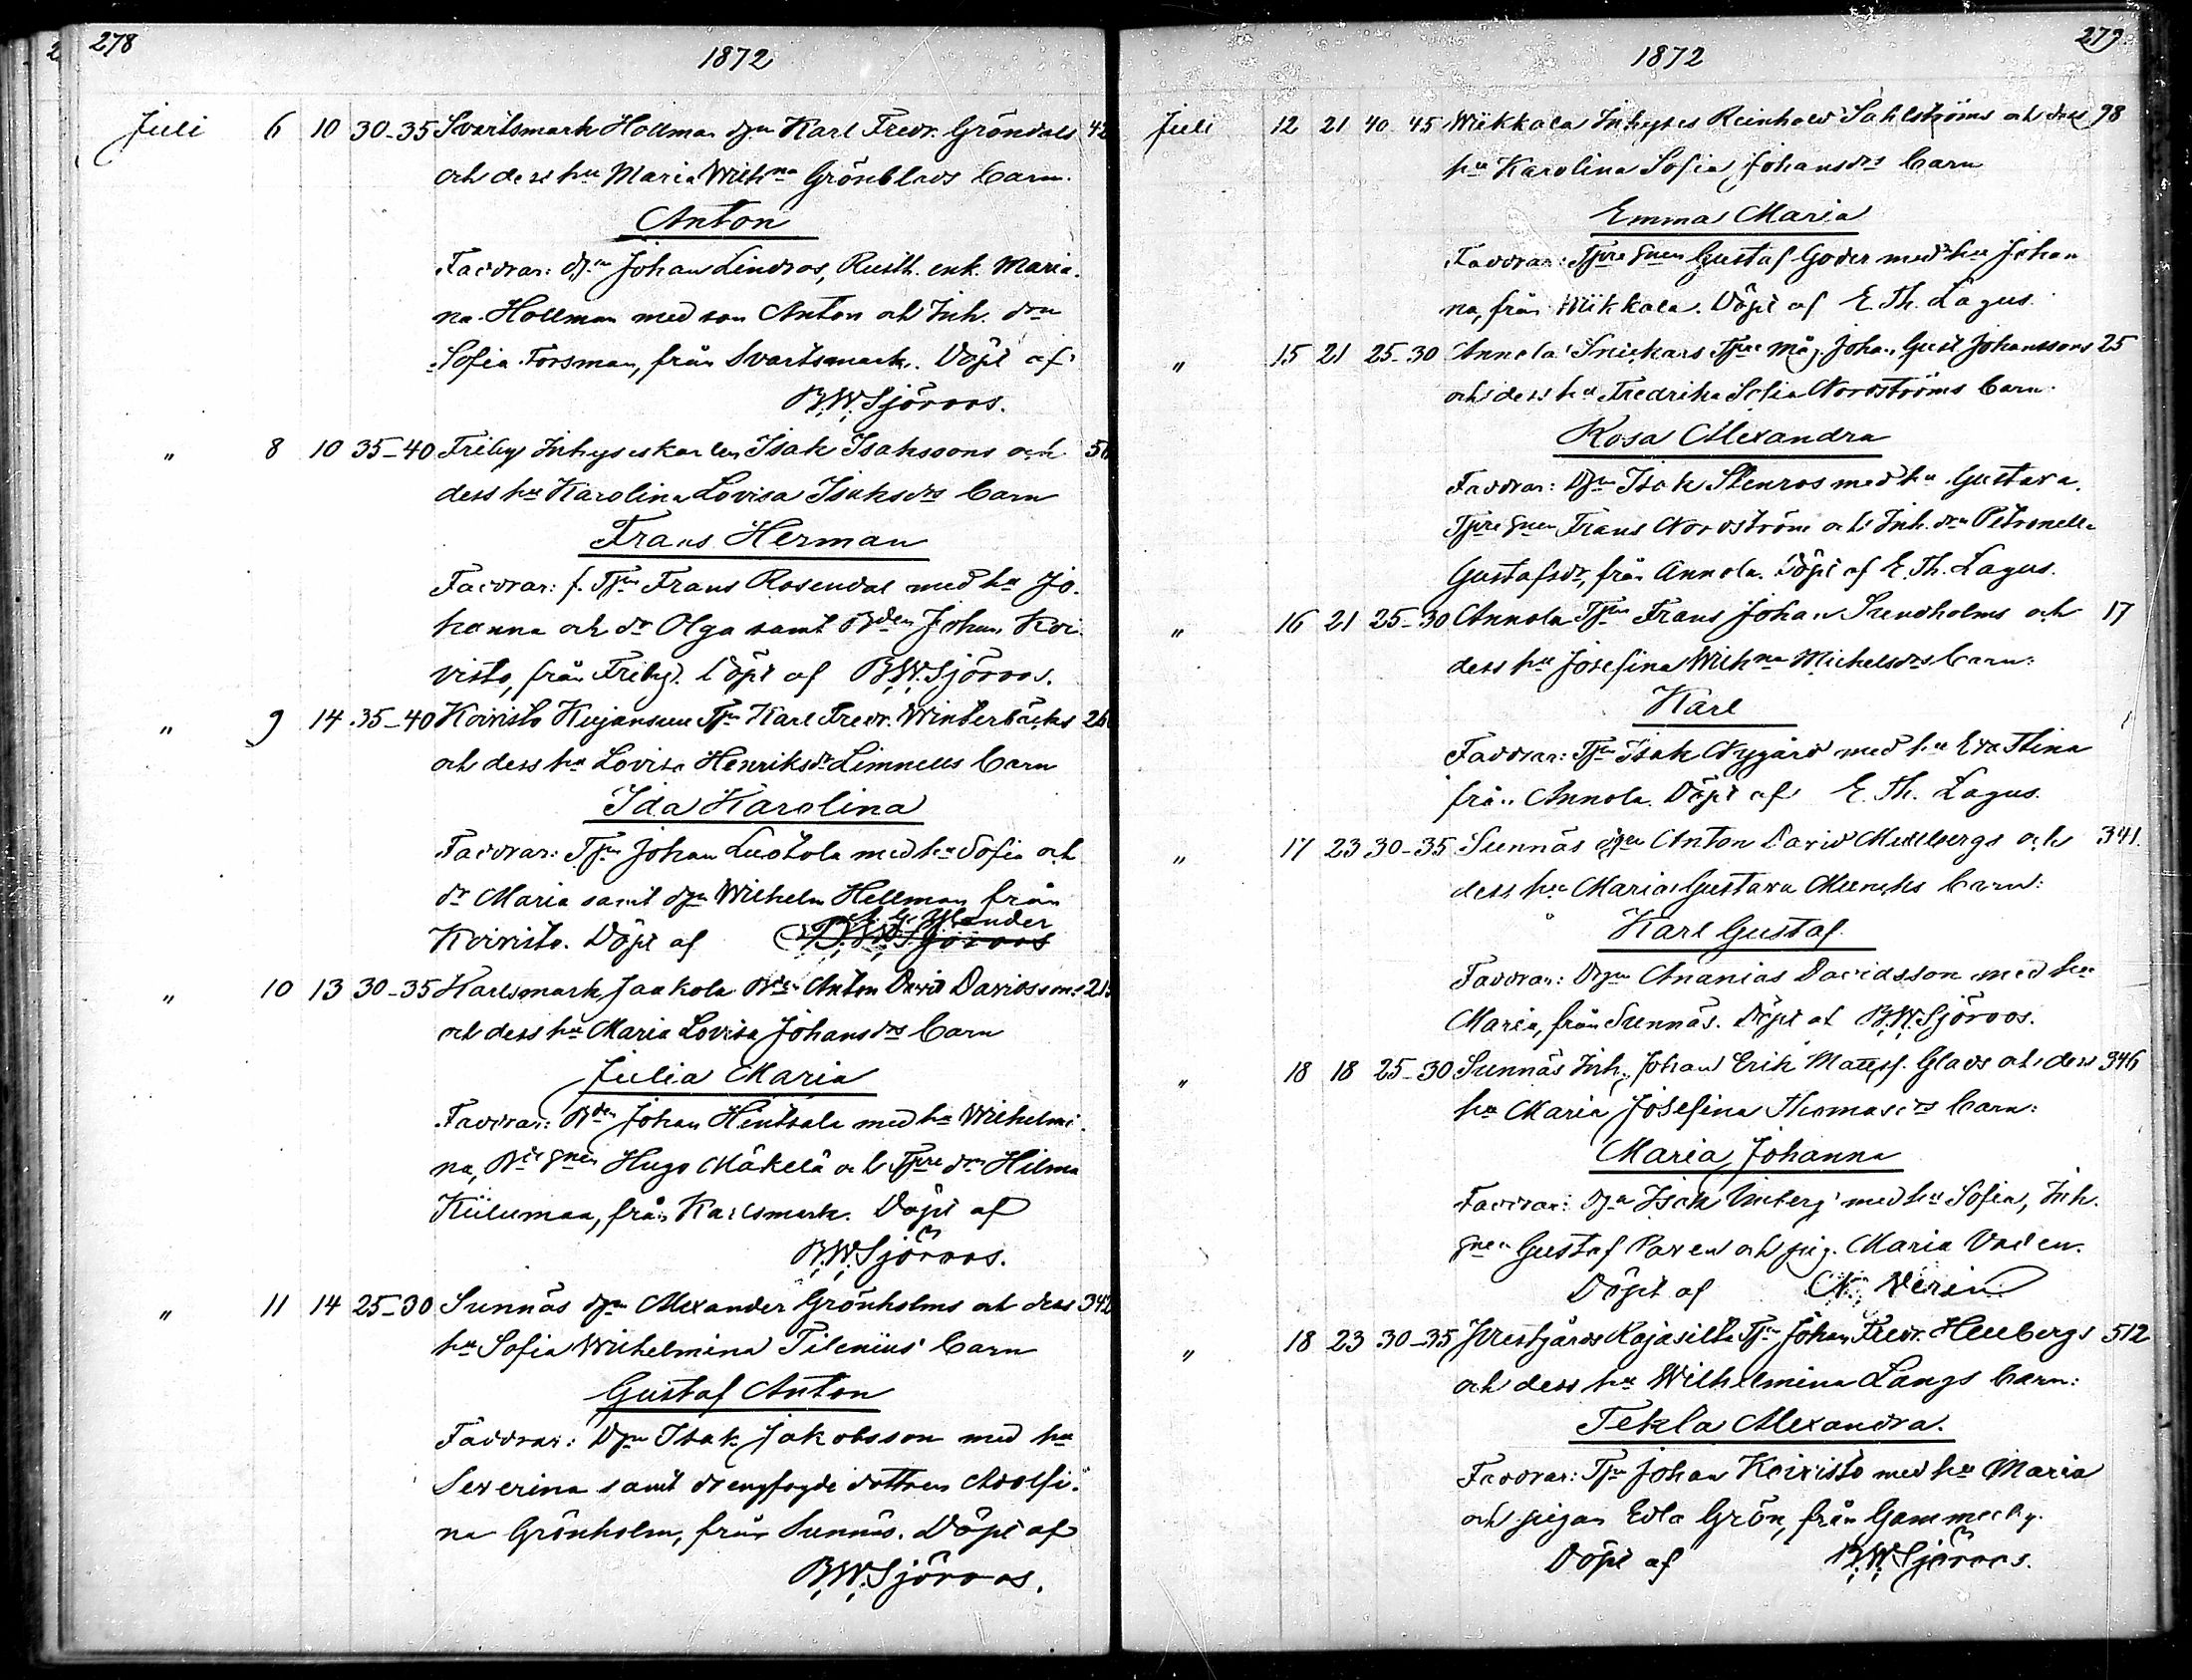 278
1872
Juli 6 10 30-35 Svartsmark Hollman Karl Fredr. Gröndals 42
och dess hu Maria Wilhna Grönblads barn.
Anton
Faddrar: Johan Lindros, Rusth. enk. Maria-
na Hollman med son Anton och Inh. drn
Sofia Forsman, från Svartsmark. Döpt af
B.W.Sjöroos.
" 8 10 35-40 Friby Inhyseskarlen Isak Isakssons och
dess hu Karolina Lovisa Isaksdrs barn
Frans Herman
Faddrar: f. Tjn Frans Rosendal med hu Jo-
hanna och dr Olga samt Bden Johan Koi-
visto, från Friby. Döpt af B.W.Sjöroos.
" 9 14 35-40 Koivisto Kujansuu Tpn Karl Fredr. Winterbäcks 26
och dess hu Lovisa Henriksdr Limnells barn
Ida Karolina
Faddrar: Tpn Johan Luotola med hu Sofia och
dr Maria samt Wilhelm Hellman från
Koivisto. Döpt af B.W.Sjöroos
" 10 13 30-35 Karlsmark Jaakola Bden Anton David Davidssons 21
och dess hu Maria Lovisa Johansdrs barn
Julia Maria
Faddrar: Bden Johan Hintsala med hu Wilhelmi-
na, Hugo Mäkelä och Tpre drn Hilma
Kiilumaa, från Karlsmark. Döpt af
B.W.Sjöroos.
" 11 14 25-30 Sunnäs Alexander Grönholms och dess 342
hu Sofia Wilhelmina Tilenius' barn
Gustaf Anton
Faddrar: Isak Jakobsson med hu
Severina samt drengfogde dottren Adolfi-
na Grönholm, från Sunnäs. Döpt af
B.W.Sjöroos.
279
1872
Juli 12 21 40 45 Wiikkala Inhyses Reinhold Sahlströms och dess 98
hu Karolina Sofia Johansdrs barn
Emma Maria
Faddrar: Tpre snen Gustaf Goder med hu Johan-
na, från Wiikkala. Döpt af E. Th. Lagus.
" 15 21 25-30 Annola Snickars Tpre måg Johan Gust Johanssons 25
och dess hu Fredrika Sofia Nordströms barn.
Rosa Alexandra
Faddrar: Isak Stenros med hu Gustava.
Tpre snen Frans Nordström och Inh. drn Petronella
Gustafsdr, från Annola. Döpt af E. Th. Lagus.
" 16 21 25-30 Annola Tpn Frans Johan Sundholms och 17
dess hu Josefina Wilhna Michelsdrs barn:
Karl
Faddrar: Tpn Isak Nygård med hu Eva Stina
från Annola. Döpt af E. Th. Lagus.
" 17 23 30-35 Sunnäs Anton David Mellbergs och 341
dess hu Maria Gustava Muncks barn:
Karl Gustaf.
Faddrar: Ananias Davidsson med hu
Maria, från Sunnäs. Döpt af B.W.Sjöroos.
" 18 18 25-30 Sunnäs Inh. Johan Erik Mattss. Glads och dess 346
hu Maria Josefina Thomasdrs barn:
Maria Johanna
Faddrar: Isak med hu Sofia, Inh.
snen Gustaf och pig. Maria
Döpt af
" 18 23 30-35 Prestgårds Rajasilta Tpn Johan Fredr. Hellbergs 512
och dess hu Wilhelmina Langs barn:
Tekla Alexandra.
Faddrar: Tpn Johan Koivisto med hu Maria
och pigan Edla Grön, från Gammelby.
Döpt af B.W.Sjöroos.